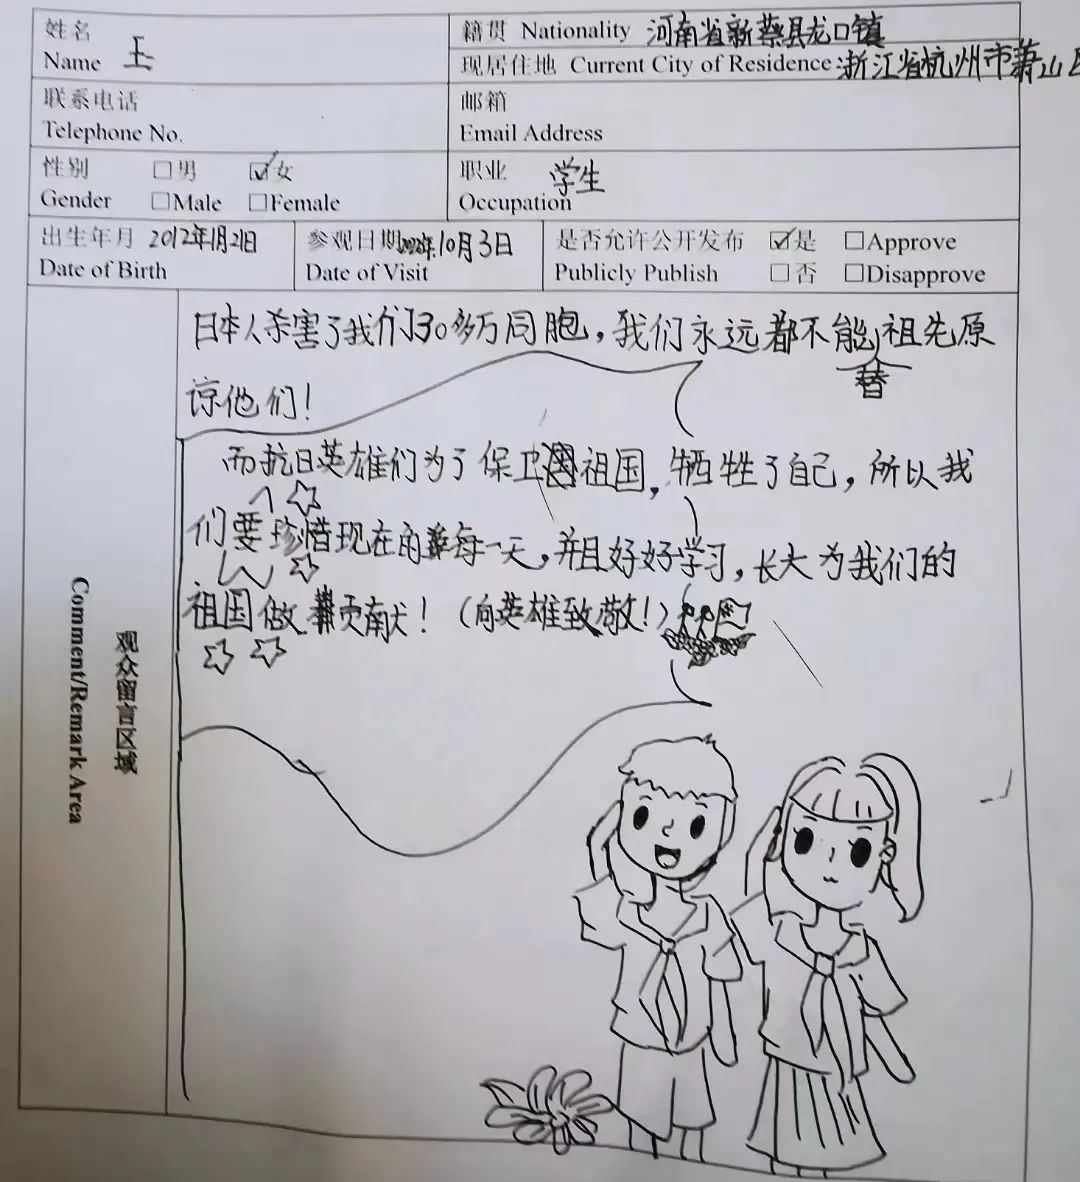 姓名
Name 王
籍贯 Nationality 河南省新蔡县龙口镇
现居住地 Current City of Residence 浙江省杭州市萧山区
联系电话
Telephone No.
邮箱
Email Address
性别 □男 ☑女
Gender □Male □Female
职业 学生
Occupation
出生年月 2012年1月21日
Date of Birth
参观日期 10月3日
Date of Visit
是否允许公开发布 ☑是 □Approve
Publicly Publish □否 □Disapprove
观众留言区域
Comment/Remark Area
日本人杀害了我们30多万同胞，我们永远都不能替祖先原
谅他们！
而抗日英雄们为了保卫祖国，牺牲了自己，所以我
们要珍惜现在的每一天，并且好好学习，长大为我们的
祖国做贡献！（向英雄致敬！）